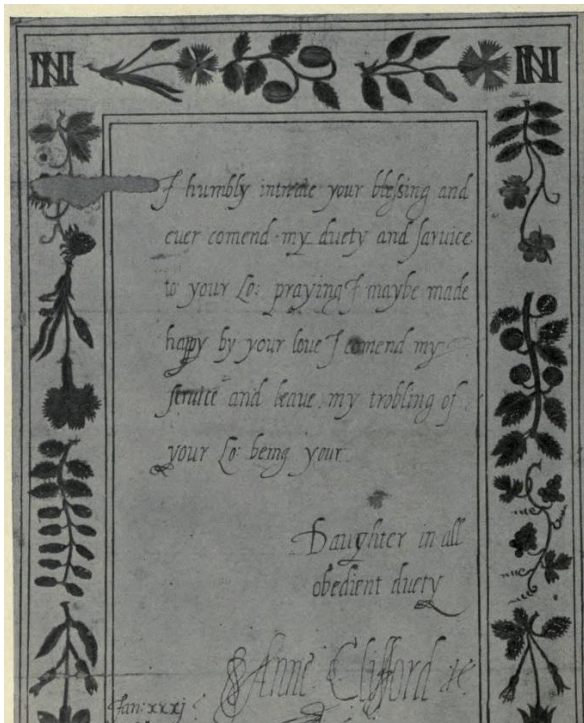 I humbly intreate your blessing and
ever comend my duety and saruice
to your Lo: praying I maybe made
happy by your love I comend my
saruice and leaue my trobling of
your Lo: being your
Daughter in all
obedient duety
Anne Clifford
Jan: xxxj